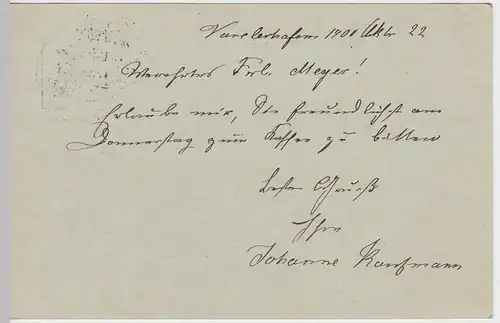 Varelerhafen 1900 Oktb 22
Verehrtes Frl. Meyer!
Erlaube mir, Sie freundlichst am
Donnerstag zum Kaffee zu bitten
Besten Gruß
Ihre
Johanne Kaufmann